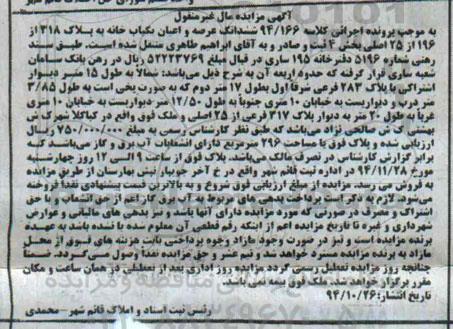 آگهی مزایده مال غیرمنقول
به موجب پرونده اجرائی کلاسه ۹۴/۱۶۶ ششدانگ عرصه و اعیان یکباب خانه به پلاک ۳۱۸ از
۱۹۶ از ۲۵ اصلی بخش ۴ ثبت و صادر و به آقای ابراهیم طاهری منتقل شده است. طبق سند
رهنی شماره ۵۱۹۶ دفترخانه ۱۹۵ ساری در قبال مبلغ ۵۲۲۲۳۷۶۹ ریال در رهن بانک سامان
شعبه ساری قرار گرفته که حدود اربعه آن به شرح ذیل می‌باشد: شمالاً به طول ۱۵ متر دیوار
اشتراکی با پلاک ۲۸۳ فرعی شرقاً اول بطول ۱۷ متر دوم که به صورت پخی است به طول ۳/۸۵
متر درب و دیواریست به خیابان ۱۰ متری جنوباً به طول ۱۲/۵۰ متر دیواریست به خیابان ۱۰ متری
غرباً به طول ۲۰ متر به دیوار پلاک ۳۱۷ فرعی از ۲۵ اصلی و ملک فوق واقع در کیاکلا شهرک ش
بهشتی ک ش صالحی نژاد می‌باشد که طبق نظر کارشناس رسمی به مبلغ ۷۵۰/۰۰۰/۰۰۰ ریال
ارزیابی شده و پلاک فوق با مساحت ۲۹۶ مترمربع دارای انشعابات آب برق و گاز می‌باشد که
برابر گزارش کارشناس در تصرف مالک می‌باشد. پلاک فوق از ساعت ۹ الی ۱۲ روز چهارشنبه
مورخ ۹۴/۱۱/۲۸ در اداره ثبت قائم شهر واقع در خ آخر جویبار نبش بهارستان از طریق مزایده
به فروش می رسد. مزایده از مبلغ ارزیابی فوق شروع و به بالاترین قیمت پیشنهادی نقداً فروخته
می‌شود. لازم به ذکر است پرداخت بدهی های مربوط به آب برق گاز اعم از حق انشعاب و یا حق
اشتراک و مصرف در صورتی که مورد مزایده دارای آنها باشد و نیز بدهی های مالیاتی و عوارض
شهرداری و غیره تا تاریخ مزایده اعم از اینکه رقم قطعی آن معلوم شده یا نشده باشد به عهده
برنده مزایده است و نیز در صورت وجود مازاد وجوه پرداختی بابت هزینه های فوق از محل
مازاد به برنده مزایده مسترد خواهد شد و نیم عشر و حق مزایده نقداً وصول می‌گردد. ضمناً
چنانچه روز مزایده تعطیل رسمی گردد مزایده روز اداری بعد از تعطیلی در همان ساعت و مکان
مقرر برگزار خواهد شد. ملک فوق بیمه نمی باشد.
تاریخ انتشار: ۹۴/۱۰/۲۶
رئیس ثبت اسناد و املاک قائم شهر - محمدی